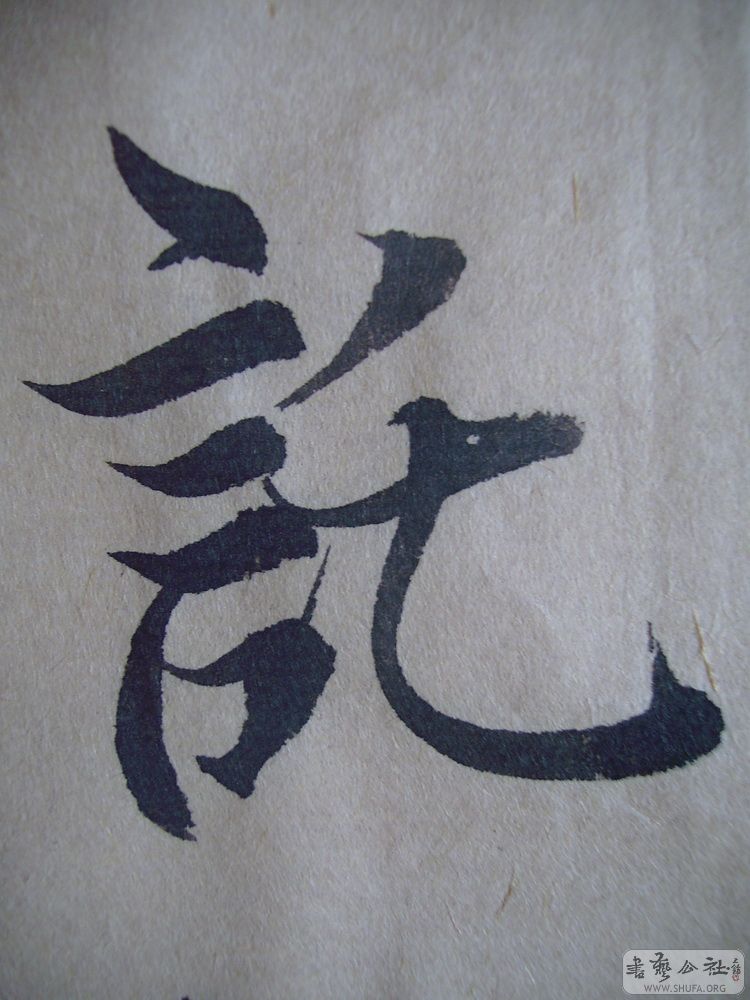 託
書藝公社
WWW.SHUFA.ORG